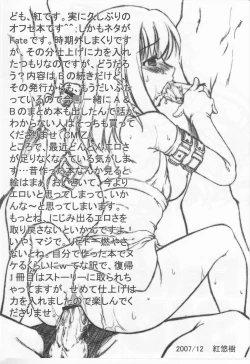 ども、紅です。実に久しぶりの
オフセ本です^^;しかもネタが
Fateです。時期外しまくりです
が、その分仕上げに力を入れ
たつもりなのですが、どうだろ
う？内容はBの続きだけど、
その発行からも、もうだいぶた
っているので
のまとめ本も出したんで話が
わからない人は
くださりませ
ところで、最近どんどんエロさ
が足りなくなっている気がしま
す…昔作った本なんか見ると
絵はまぁ
エロいと思ってしまって、いか
んな～と思ってしまいます。
もっとね、にじみ出るエロさを
取り戻さないといかんですよ
いや、マジで、
さないとね。自分で作った本でヌ
ケるくらいにｗてな訳で、復帰
1冊目はストーリーに取られち
ゃってますが、せめて仕上げは
力を入れましたので楽しんでく
ださりませ。
2007/12 紅悠樹